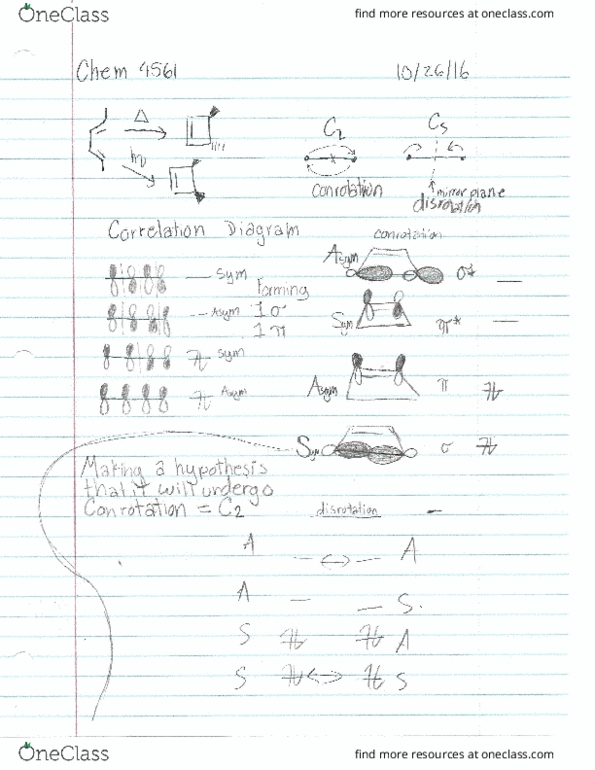 OneClass
find more resources at oneclass.com
Chem 4561
10/26/16
Δ
hν
C2
Cs
conrotation
mirror plane
disrotation
Correlation Diagram
conrotation
Sym
Asym
σ*
Forming
Asym
1σ
1π
Sym
π*
Sym
Asym
Asym
π
Sym
σ
Making a hypothesis
that it will undergo
Conrotation = C2
disrotation
A
A
A
S.
S
A
S
S
OneClass
find more resources at oneclass.com